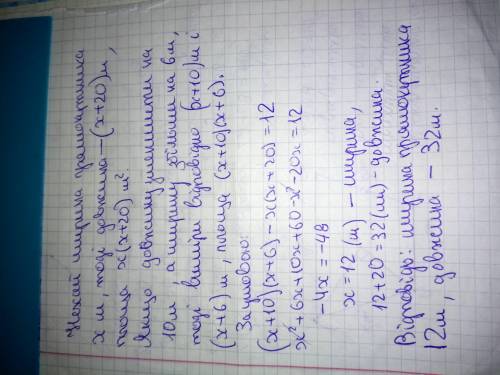 Нехай ширина прямокутника
x м, тоді довжина – (x+20)м,
площа x(x+20) м².
Якщо довжину зменшити на
10м, а ширину збільши на 6м,
тоді виміри відповідно (x+10)м і
(x+6) м, площа (x+10)(x+6).
За умовою:
(x+10)(x+6) – x(x+20) = 12
x²+6x+10x+60-x²-20x=12
-4x=-48
x=12 (м) – ширина,
12+20=32(м) – довжина.
Відповідь: ширина прямокутника
12м, довжина – 32м.